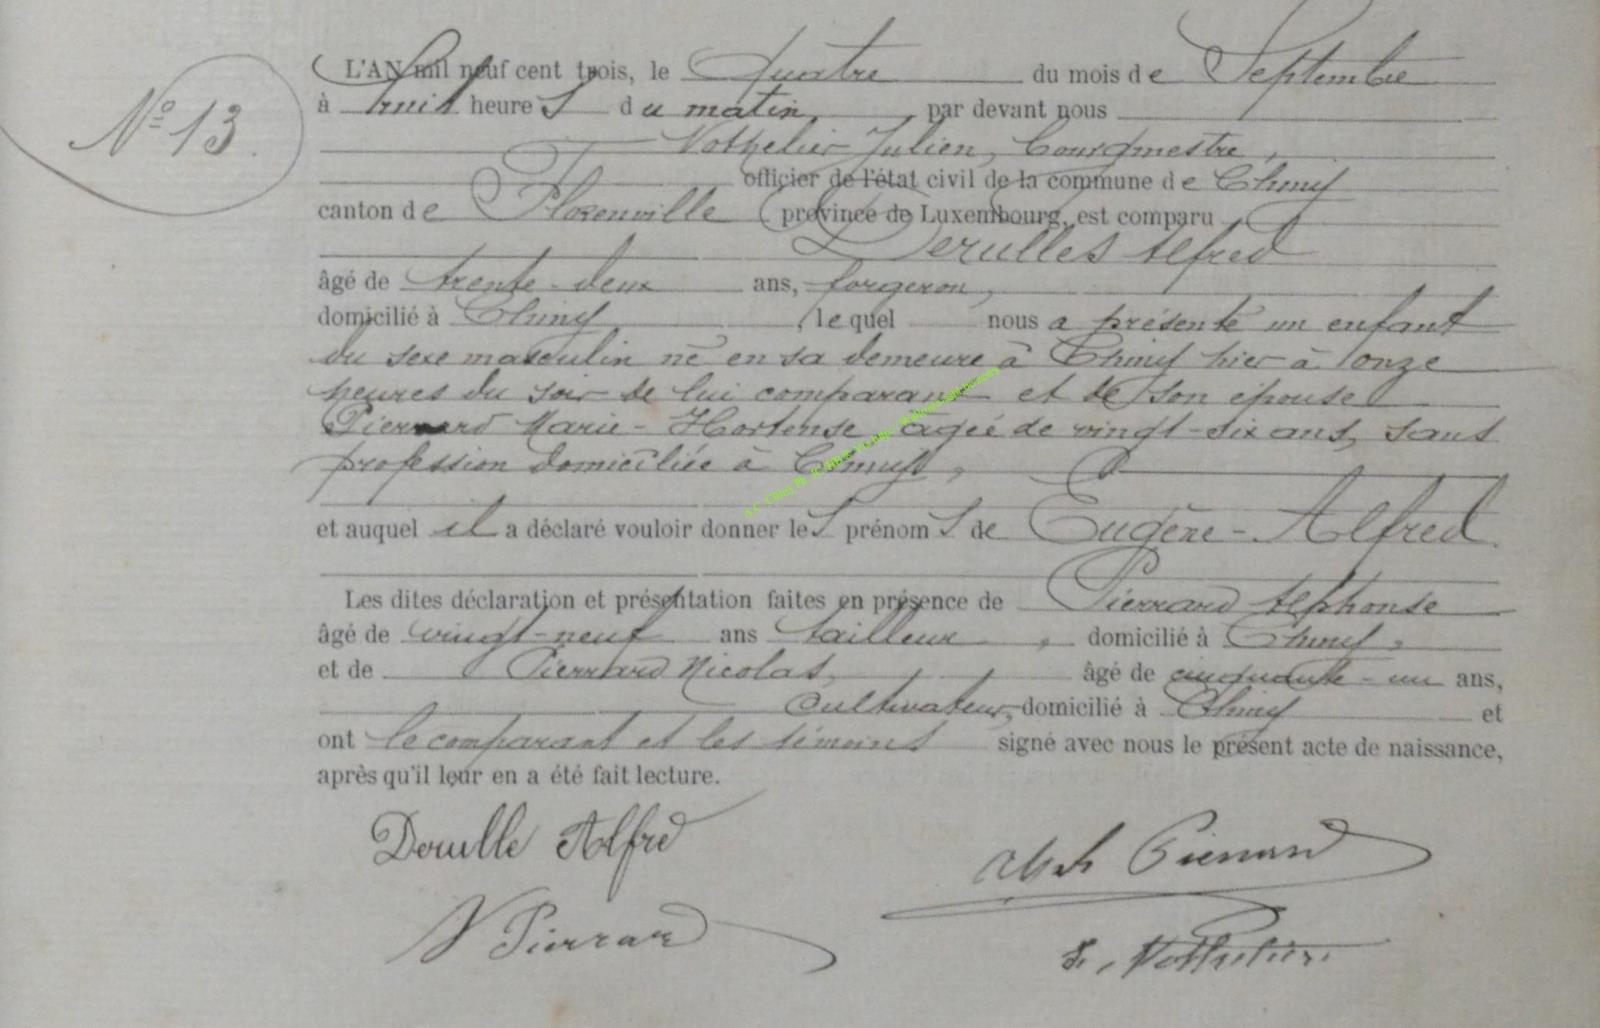 N° 13.
L'AN mil neuf cent trois, le Quatre du mois de Septembre
à huit heureS du matin, par devant nous
Nothelier Julien, Bourgmestre,
officier de l'état civil de la commune de Chiny
canton de Florenville (province de Luxembourg, est comparu
Derulles Alfred
âgé de trente-deux ans, forgeron,
domicilié à Chiny, lequel nous a présenté un enfant
du sexe masculin né en sa demeure à Chiny hier à onze
heures du soir de lui comparant et de son épouse
Pierrard Marie-Hortense, âgée de vingt-six ans, sans
profession domiciliée à Chiny,
et auquel il a déclaré vouloir donner leS prénomS de Eugène-Alfred.
Les dites déclaration et présentation faites en présence de Pierrard Alphonse
âgé de vingt-neuf ans tailleur, domicilié à Chiny,
et de Pierrard Nicolas, âgé de cinquante-un ans,
cultivateur, domicilié à Chiny et
ont le comparant et les témoins signé avec nous le présent acte de naissance,
après qu'il leur en a été fait lecture.
Derulle Alfred
Pierrard
N Pierrard
J. Nothelier.